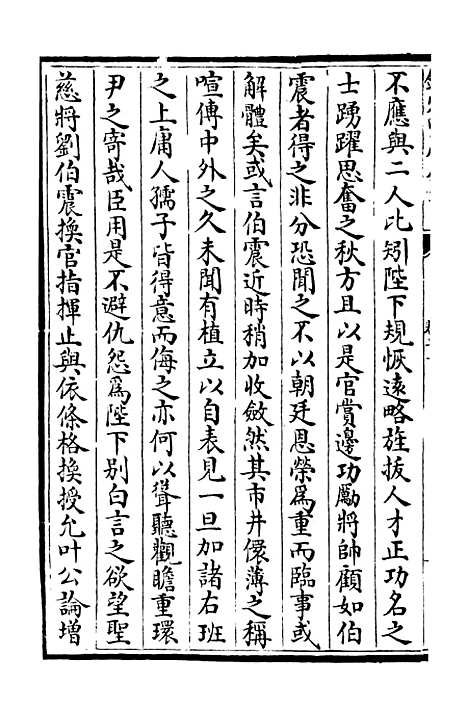 不應與二人比矧陛下規恢遠略旌拔人才正功名之
士踴躍思奮之秋方且以是官賞邊功勵將帥顧如伯
震者得之非分恐聞之不以朝廷恩榮爲重而臨事或
解體矣或言伯震近時稍加收斂然其市井儇薄之稱
喧傳中外之久未聞有植立以自表見一旦加諸右班
之上庸人孺子皆得意而侮之亦何以聳聽觀瞻重環
尹之寄哉臣用是不避仇怨爲陛下别白言之欲望聖
慈將劉伯震換官指揮止與依條格換授允叶公論增